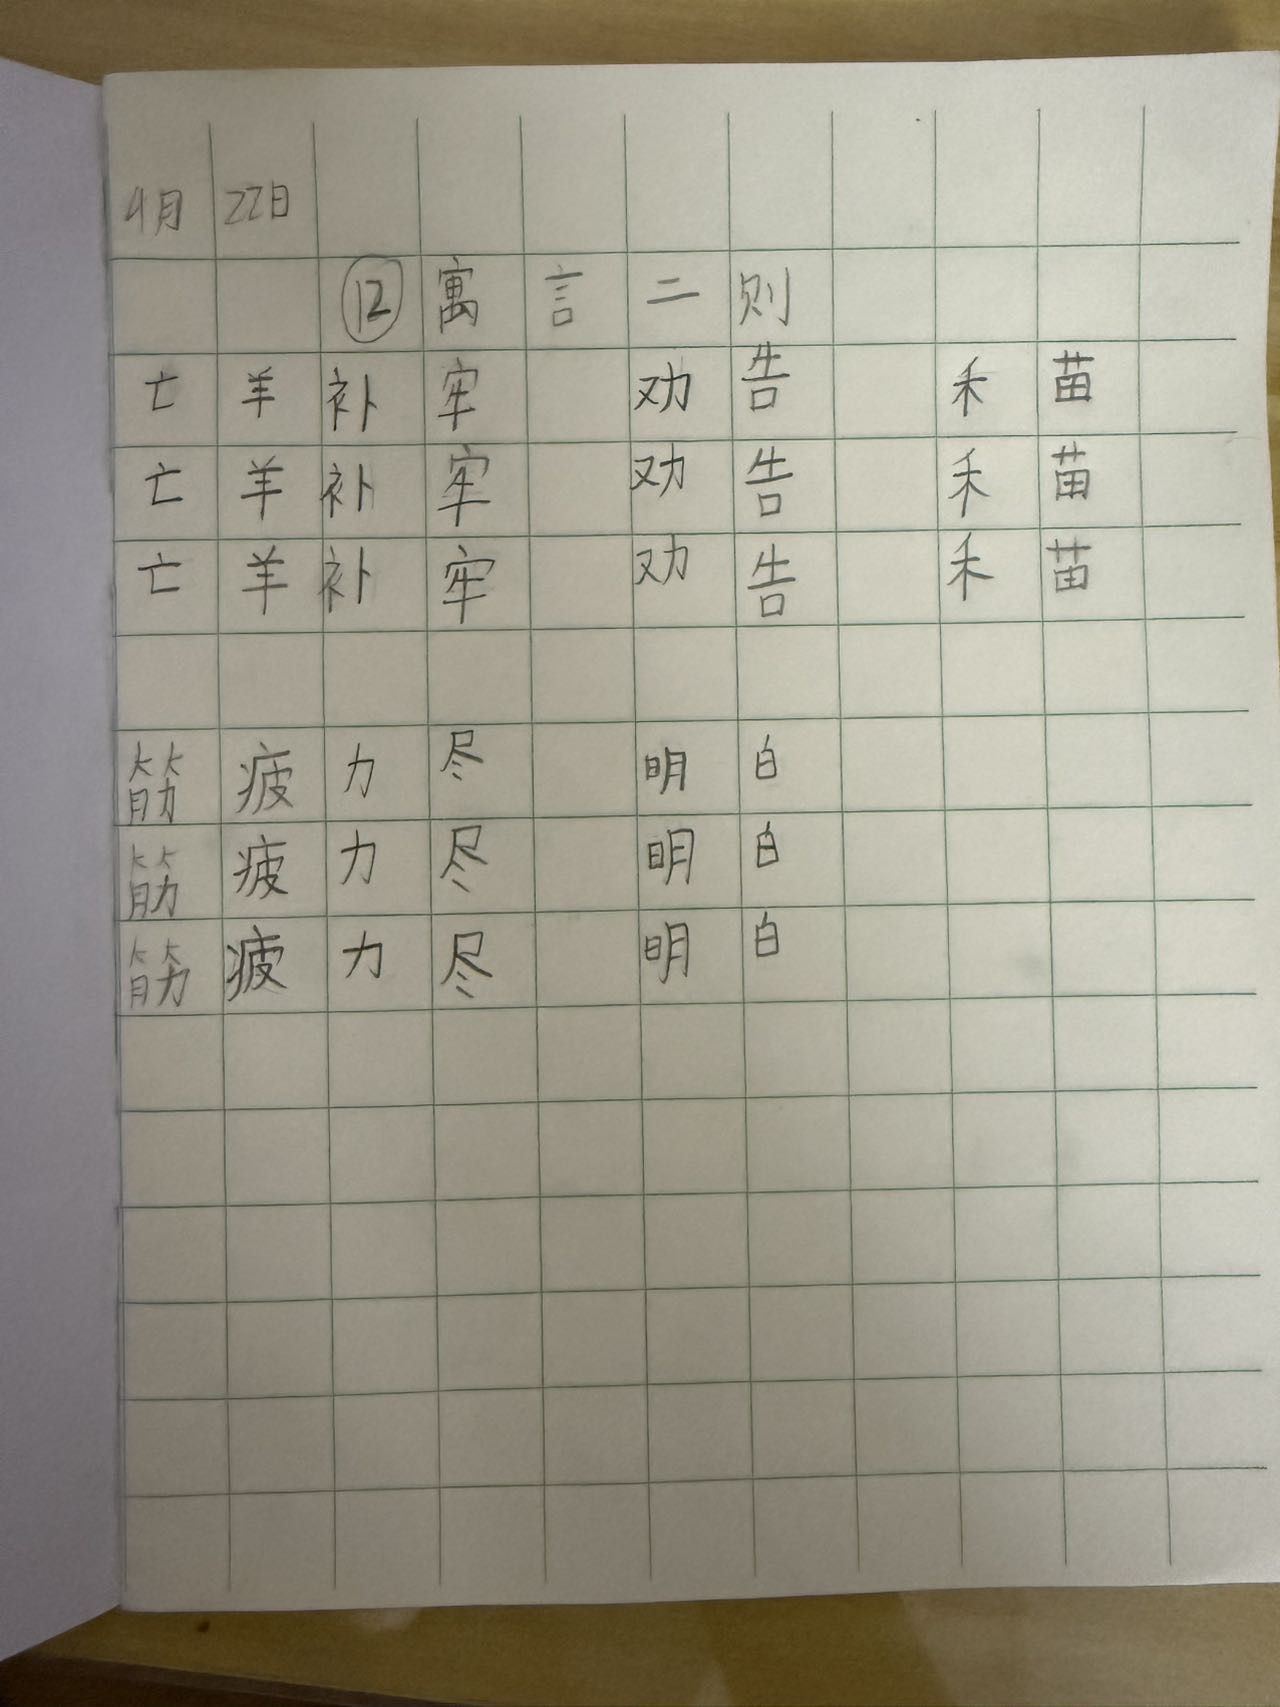 4月 22日
⑫ 寓言二则
亡羊补牢 劝告 禾苗
亡羊补牢 劝告 禾苗
亡羊补牢 劝告 禾苗
筋疲力尽 明白
筋疲力尽 明白
筋疲力尽 明白